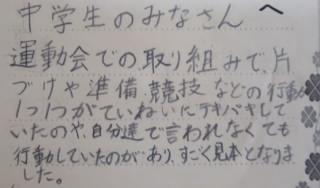 中学生のみなさんへ
運動会での取り組みで、片
づけや準備、競技などの行動
1つ1つがていねいにテキパキして
いたのや、自分達で言われなくても
行動していたのがあり、すごく見本となりま
した。